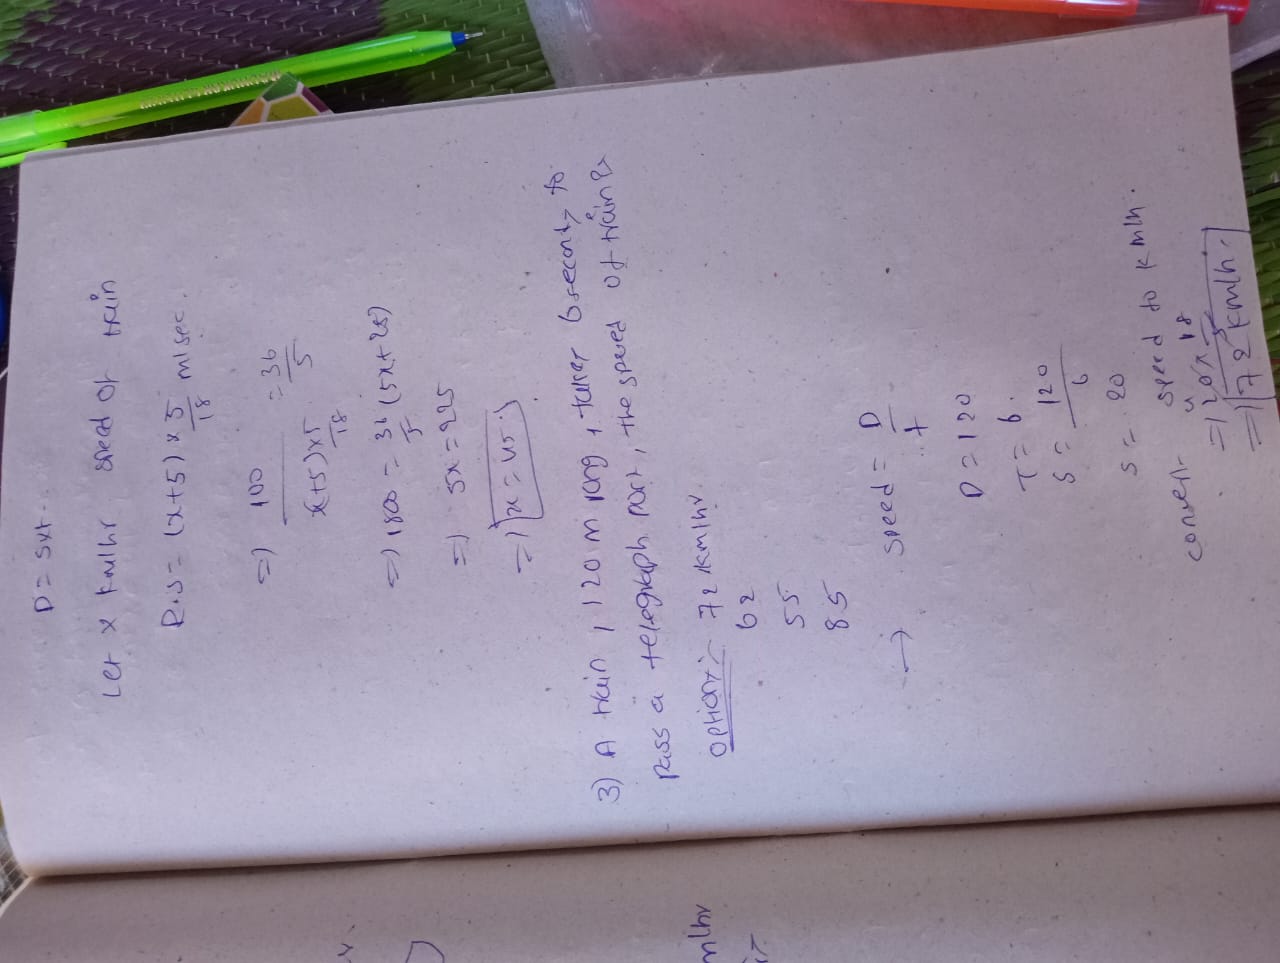 D = S x t.
Let x km/hr speed of train
R.S = (x+5) x 5/18 m/sec.
=) 100/(x+5) x 5/18 = 36/5
=) 1800 = 36/5 (5x+25)
=) 5x = 225
=) x = 45.
3) A train 120 m long, takes 6 seconds to
pass a telegraph post, the speed of train is
Options :- 72 km/hr.
62
55
85
→ speed = D/t
D = 120
T = 6.
S = 120/6
S = 20
convert speed to km/h.
=) 20 x 18/5
=) 72 km/h.
m/hr